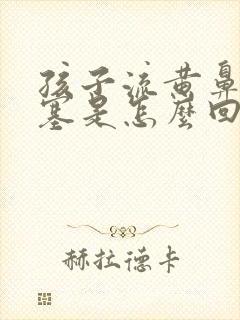 孩子流黄鼻
塞是怎麽回
赫拉德卡